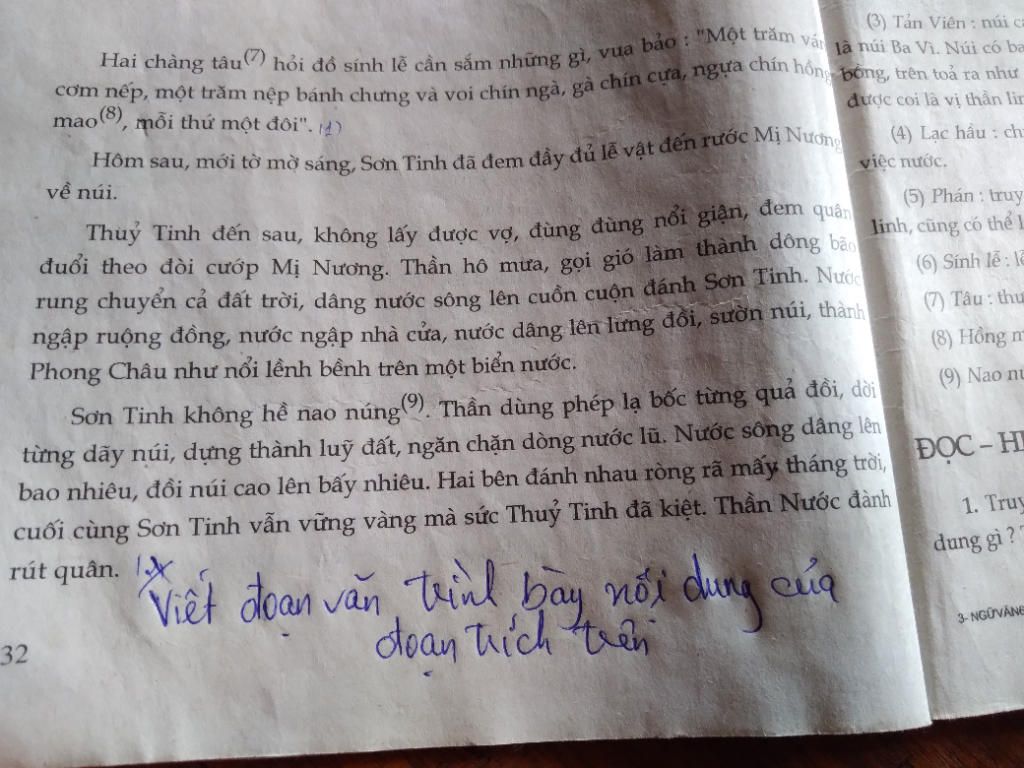 Hai chàng tâu(7) hỏi đồ sính lễ cần sắm những gì, vua bảo : "Một trăm ván
cơm nếp, một trăm nệp bánh chưng và voi chín ngà, gà chín cựa, ngựa chín hồng
mao(8), mỗi thứ một đôi". (1)
Hôm sau, mới tờ mờ sáng, Sơn Tinh đã đem đầy đủ lễ vật đến rước Mị Nương
về núi.
Thuỷ Tinh đến sau, không lấy được vợ, đùng đùng nổi giận, đem quân
đuổi theo đòi cướp Mị Nương. Thần hô mưa, gọi gió làm thành dông bão
rung chuyển cả đất trời, dâng nước sông lên cuồn cuộn đánh Sơn Tinh. Nước
ngập ruộng đồng, nước ngập nhà cửa, nước dâng lên lưng đồi, sườn núi, thành
Phong Châu như nổi lềnh bềnh trên một biển nước.
Sơn Tinh không hề nao núng(9). Thần dùng phép lạ bốc từng quả đồi, dời
từng dãy núi, dựng thành luỹ đất, ngăn chặn dòng nước lũ. Nước sông dâng lên
bao nhiêu, đồi núi cao lên bấy nhiêu. Hai bên đánh nhau ròng rã mấy tháng trời,
cuối cùng Sơn Tinh vẫn vững vàng mà sức Thuỷ Tinh đã kiệt. Thần Nước đành
rút quân.
Viết đoạn văn trình bày nối dung của
đoạn trích trên
32
(3) Tản Viên : núi
là núi Ba Vì. Núi có ba
bồng, trên toả ra như
được coi là vị thần
(4) Lạc hầu :
việc nước.
(5) Phán : truy
linh, cũng có thể
(6) Sính lễ :
(7) Tâu :
(8) Hồng
(9) Nao
ĐỌC –
1.
dung gì ?
3- NGỮ VĂN